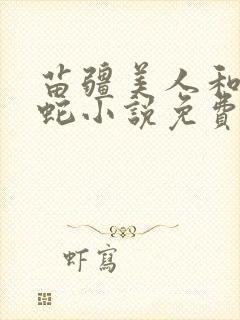 苗疆美人和
蛇小説免費
虾寫